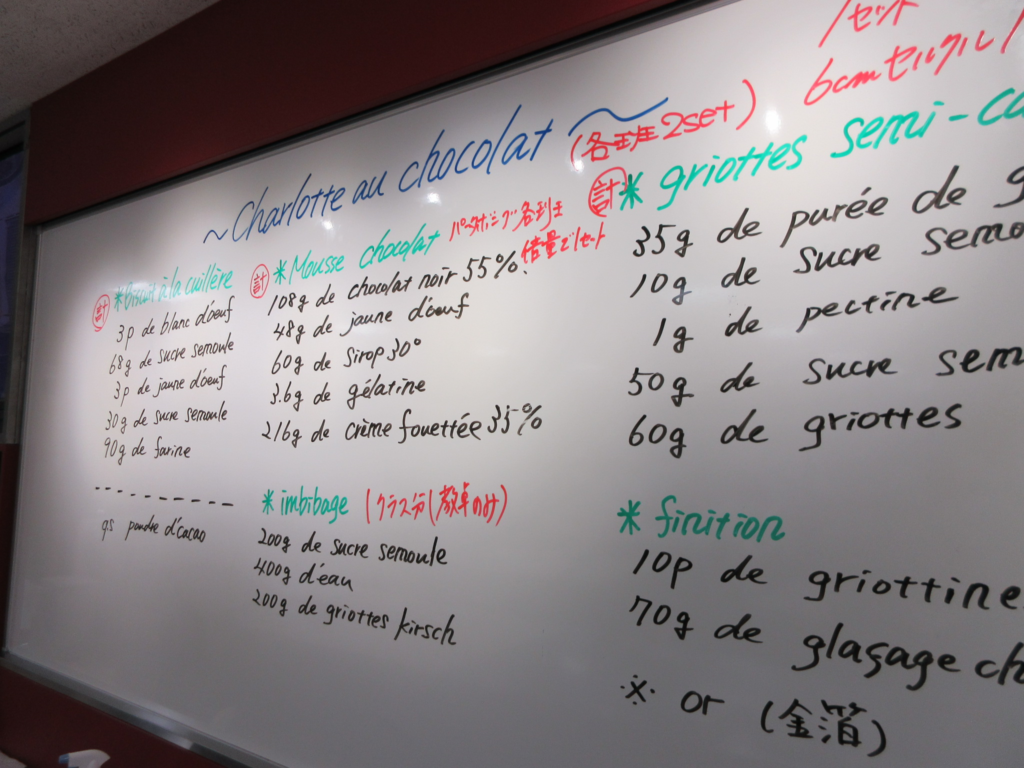 /セット
6cmセルクル/
~Charlotte au chocolat~
(各班2set)
計 *Biscuit à la cuillère
3p de blanc d'œuf
68g de sucre semoule
3p de jaune d'œuf
30g de sucre semoule
90g de farine
qs poudre d'cacao
計 *Mousse chocolat
各班
倍量で1セット
108g de chocolat noir 55%.
48g de jaune d'œuf
60g de sirop 30°
3.6g de gélatine
216g de crème fouettée 35%
*imbibage (クラス分(教卓のみ)
200g de sucre semoule
400g d'eau
200g de griottes kirsch
計 *griottes semi-ca
35g de purée de g
10g de sucre semo
1g de pectine
50g de sucre sem
60g de griottes
*finition
10p de griottine
70g de glaçage ch
※ or (金箔)